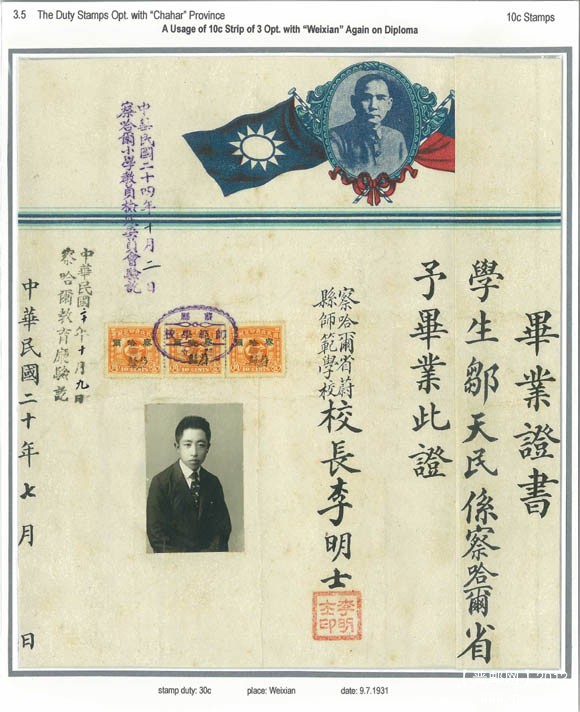 3.5 The Duty Stamps Opt. with “Chahar” Province
10c Stamps
A Usage of 10c Strip of 3 Opt. with “Weixian” Again on Diploma
畢業證書
學生鄒天民係察哈爾省
予畢業此證
察哈爾省蔚
縣師範學校
校長李明士
李明
士印
中華民國二十四年十月二日
察哈爾小學教員檢定委員會驗訖
中華民國二十年十月九日
察哈爾教育廳驗訖
中華民國二十年七月 日
10 CENTS
10 CENTS
10 CENTS
stamp duty: 30c place: Weixian date: 9.7.1931